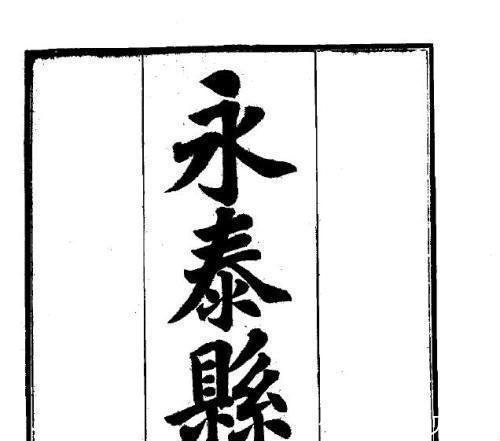 永泰縣